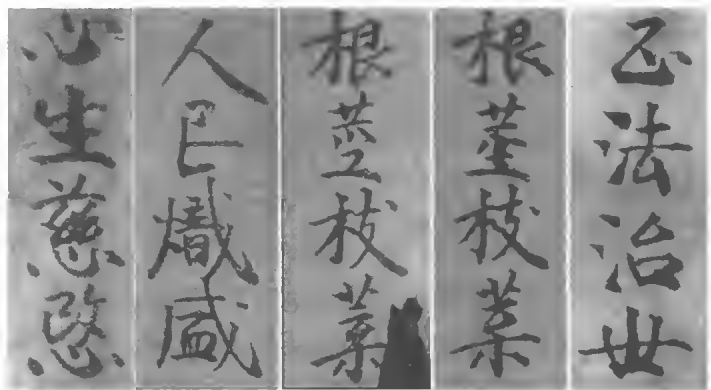 正法治世
根莖枝葉
根莖枝葉
人民熾盛
心生慈愍